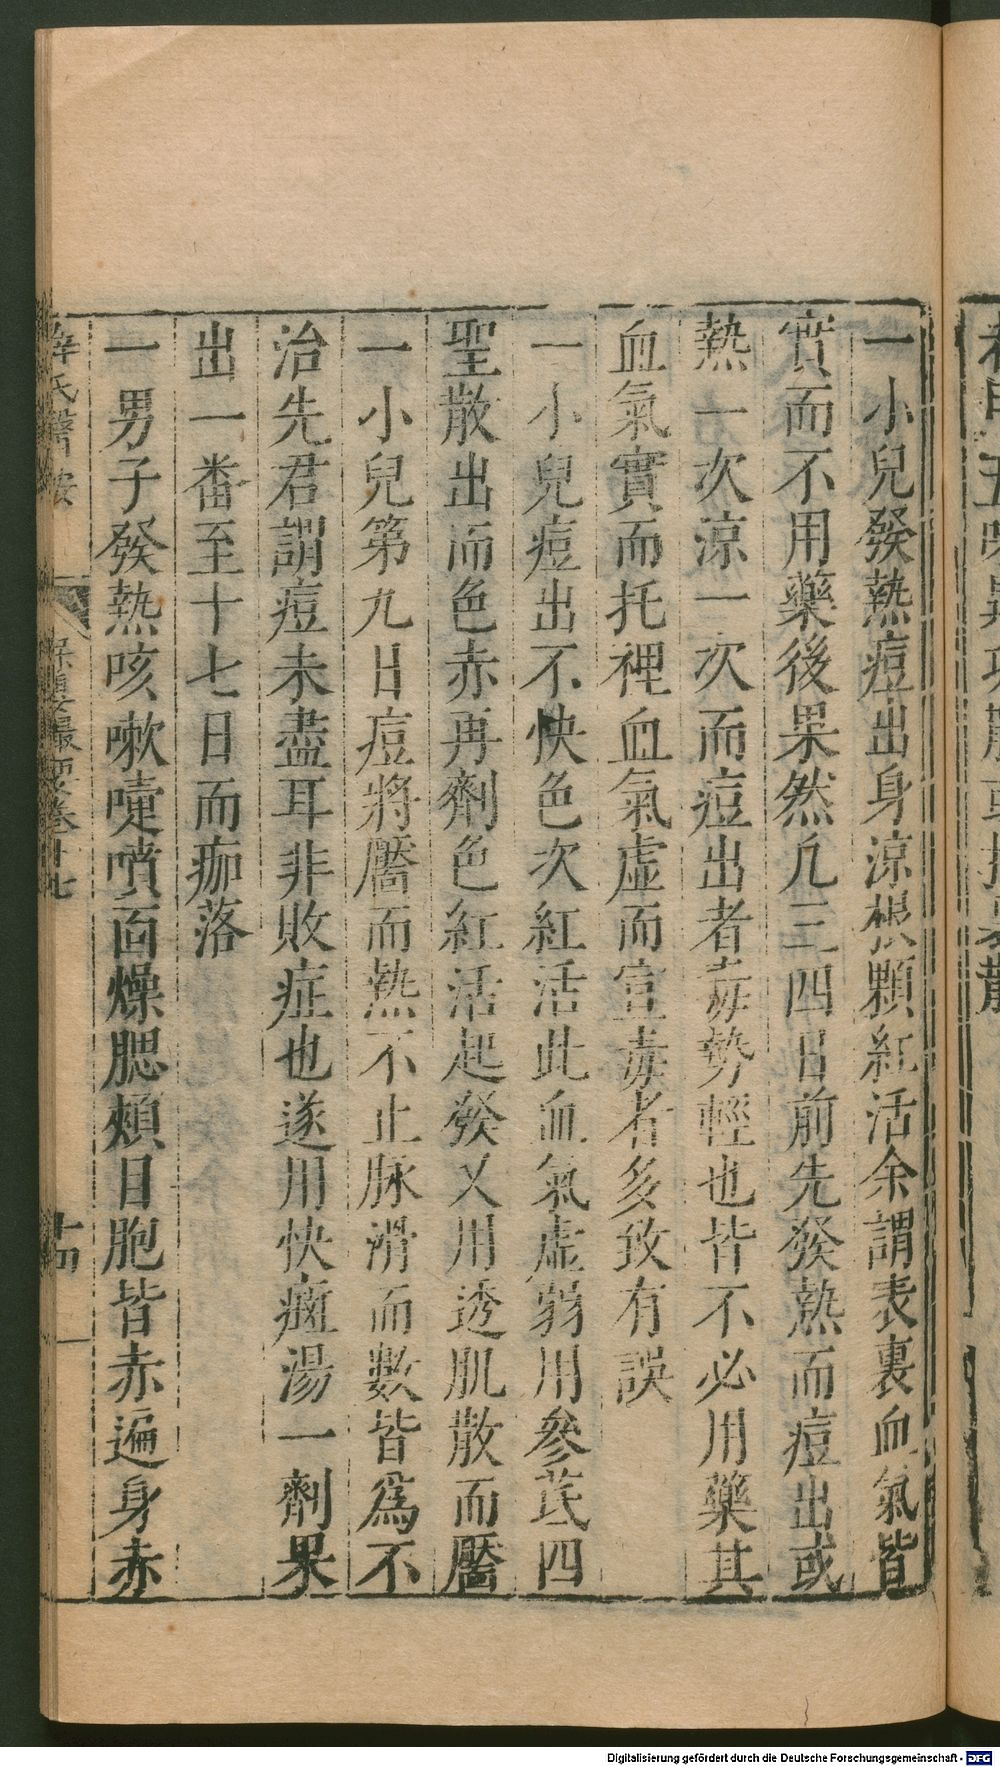 一小兒發熱痘出身涼根顆紅活余謂表裏血氣皆
實而不用藥後果然凡三四日前先發熱而痘出或
熱一次涼一次而痘出者毒勢輕也皆不必用藥其
血氣實而托裡血氣虛而宣毒者多致有誤
一小兒痘出不快色次紅活此血氣虛弱用參芪四
聖散出而色赤再劑色紅活起發又用透肌散而靨
一小兒第九日痘將靨而熱不止脉滑而數皆爲不
治先君謂痘未盡耳非敗症也遂用快癍湯一劑果
出一番至十七日而痂落
一男子發熱咳嗽嚏噴面燥腮頰目胞皆赤遍身赤
薛氏醫按
保嬰撮要卷十七
十四
Digitalisierung gefördert durch die Deutsche Forschungsgemeinschaft - DFG